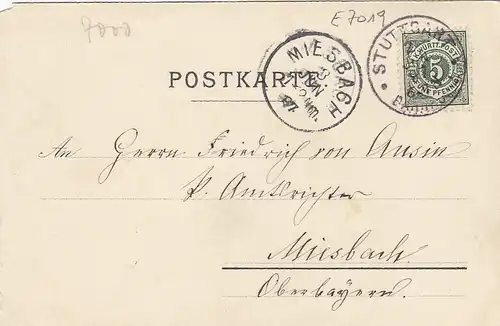 7000
E7019
POSTKARTE.
MIESBACH
JUN
97.
STUTTGART
K.WÜRTT.POST
5
An Herrn Friedrich von Ausin
k. Amtsrichter
Miesbach.
Oberbayern.